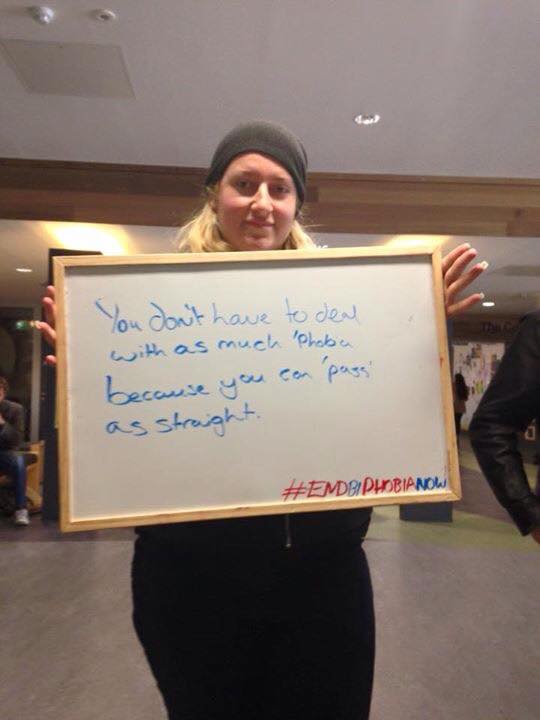 You don't have to deal
with as much 'Phobia
because you can 'pass'
as straight.
#ENDBIPHOBIANOW